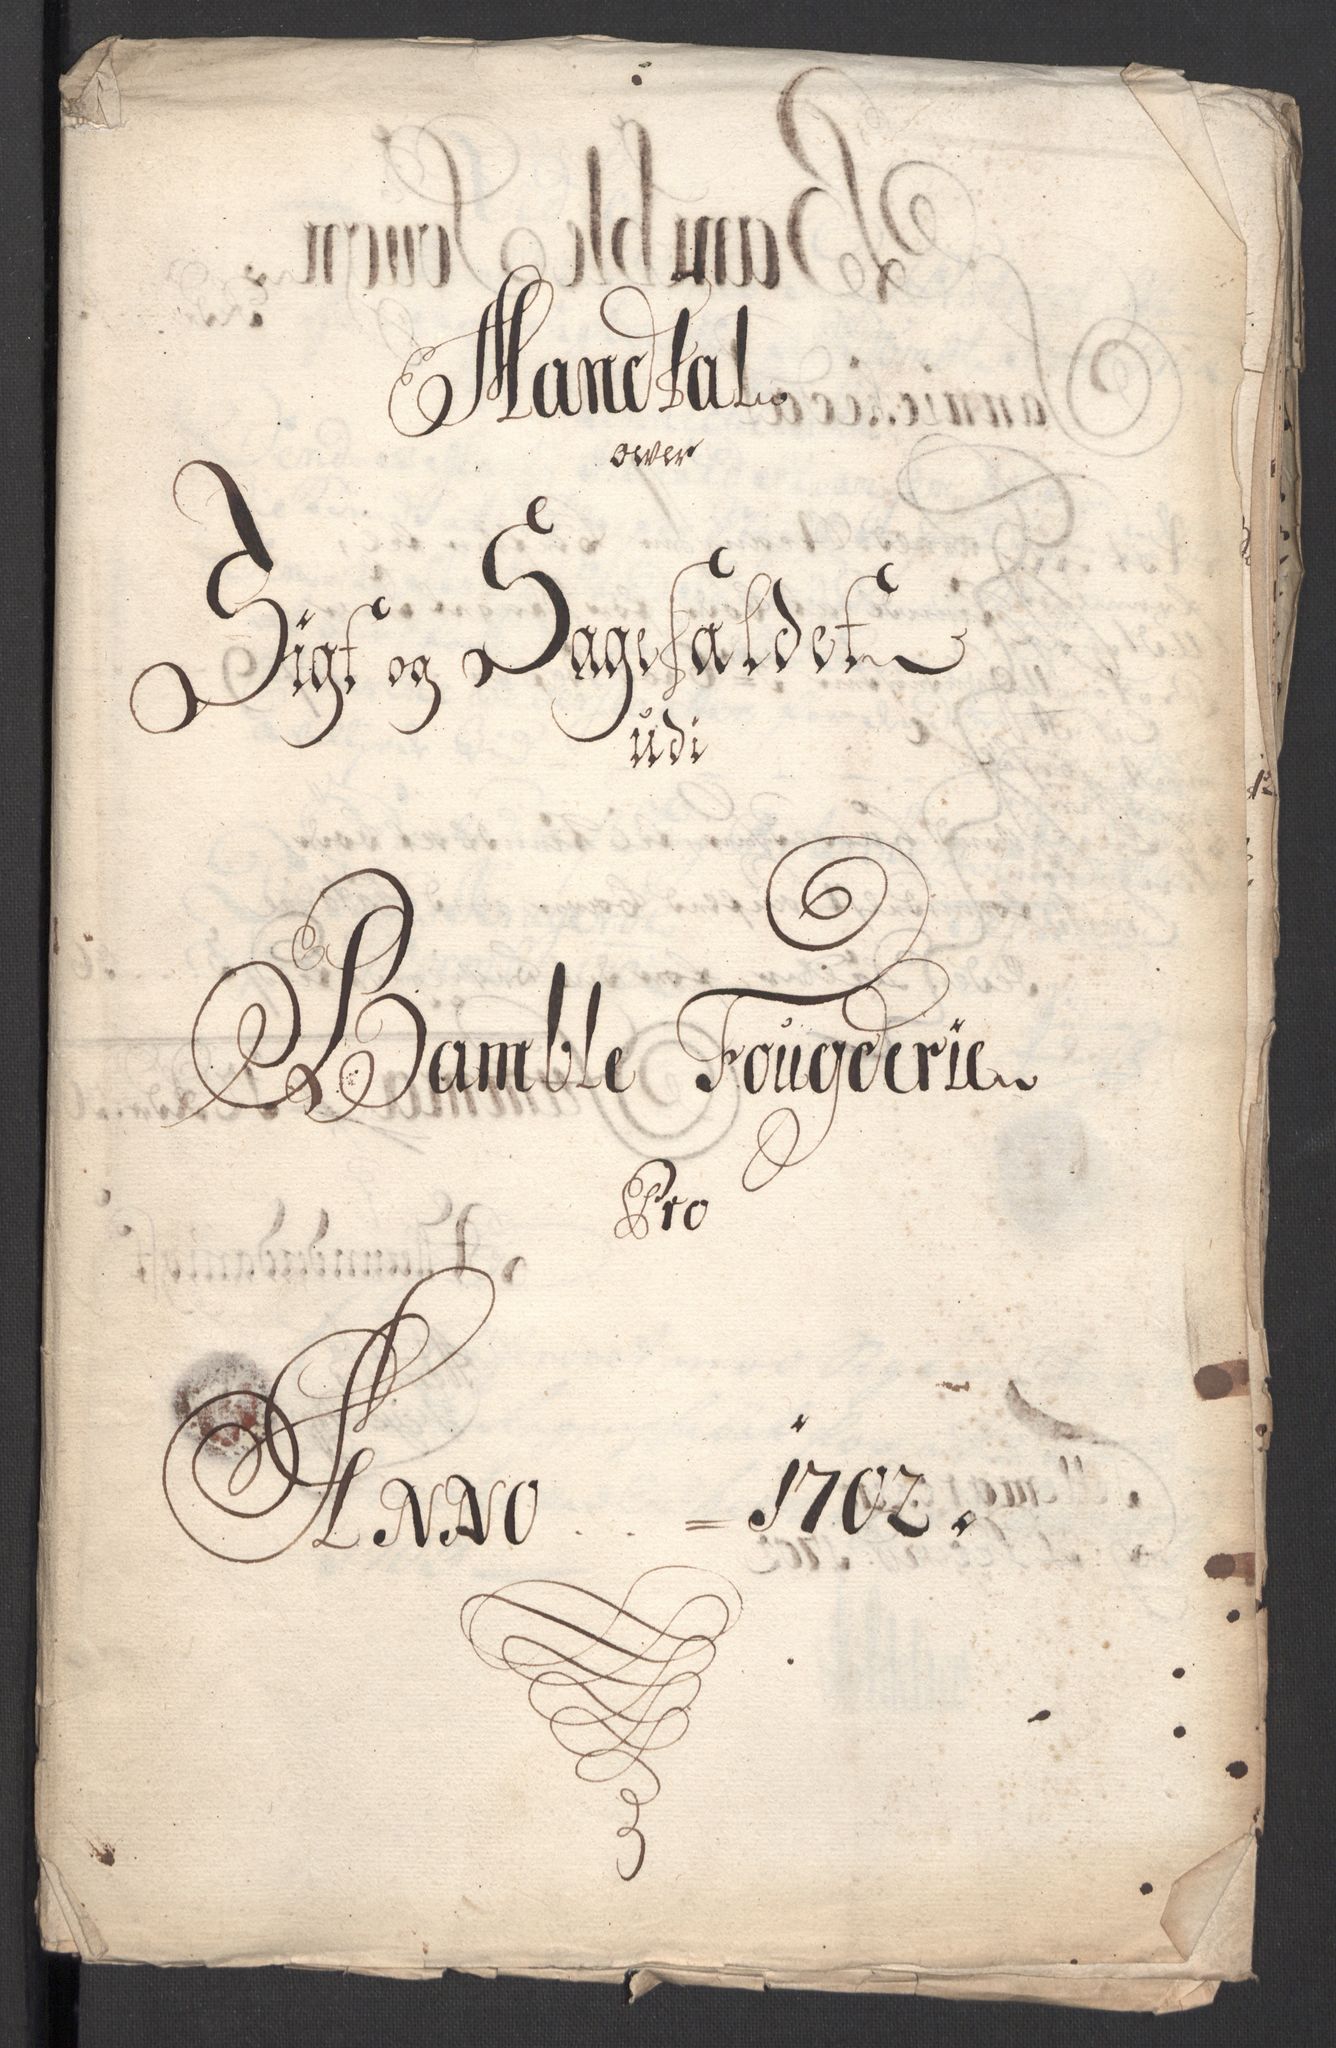 Mandtal
over
Sigt og Sagefaldet
udi
Bamble Fougderie
Pro
ANNO = 1702.